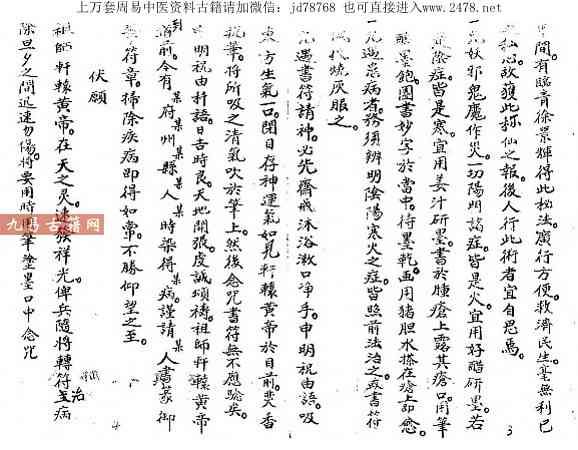 上万套周易中医资料古籍请加微信：jd78768 也可直接进入www.2478.net
中間。有臨青徐景輝得此秘法。廣行方便。救濟民生。毫無利己
私心。故獲此孫仙之報。後人行此術者宜自思焉。
一凡妖邪鬼魔作火。一切陽明諸症。皆是火。宜用好酷研墨。若
陰症皆是寒。宜用姜汁研墨。書於腫瘡上。露其瘡口。用筆
醮墨飽。圈書妙字於當中。待墨乾。再用猪胆水搽在瘡上即愈。
一凡遇患病者。務須辨明陰陽寒火之症。皆照前法治之。或書符
代燒灰服之。
凡遇書符請神。必先齋戒沐浴。漱口净手。申明祝由語。吸
東方生氣一口。閉目存神運氣。如見軒轅黃帝於目前。焚香
執筆。將所吸之清氣吹於筆上。然後念咒書符。無不應驗矣。
明祝由科語。曰古時良。天地開張。虔誠頌禱。祖師軒轅黃帝
道前。今有某府某州某縣某人某時染得某病。謹請某人書篆御
符章。掃除疾病。即得如常。不勝仰望之至。
伏願
祖師軒轅黃帝。在天之灵。速發祥光。俾兵隨將轉。符至病
除。旦夕之間。迅速勿傷。將要用時。用筆塗墨。口中念咒
治
3
4
九易古籍网